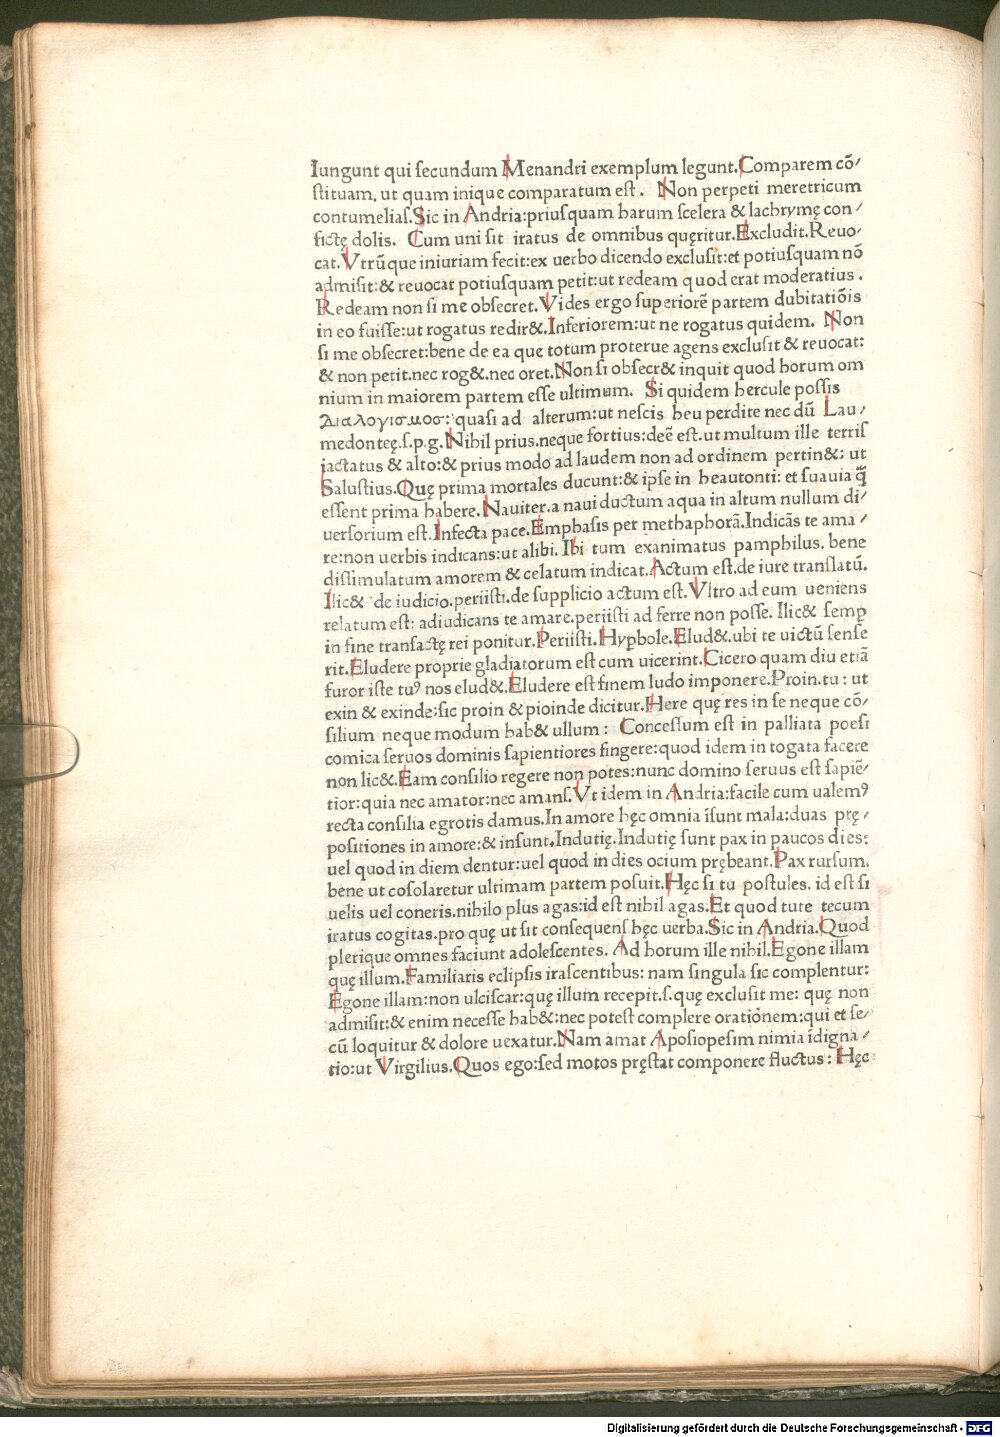 Iungunt qui ſecundum Menandri exemplum legunt.Comparem cō⸗
ſtituam, ut quam inique comparatum eſt. Non perpeti meretricum
contumeliaſ.Sic in Andria:priuſquam harum ſcelera & lachrymę con⸗
fictę dolis. Cum uni ſit iratus de omnibus quęritur.Excludit.Reuo⸗
cat.Vtrūque iniuriam fecit:ex uerbo dicendo excluſit:et potiuſquam nō
admiſit:& reuocat potiuſquam petit:ut redeam quod erat moderatius.
Redeam non ſi me obſecret.Vides ergo ſuperiorē partem dubitatiōis
in eo fuiſſe:ut rogatus redir&.Inferiorem:ut ne rogatus quidem. Non
ſi me obſecret:bene de ea que totum proterue agens excluſit & reuocat:
& non petit.nec rog&.nec oret.Non ſi obſecr& inquit quod horum om
nium in maiorem partem eſſe ultimum. Si quidem hercule poſſis
Διαλογισμος: quaſi ad alterum:ut neſcis heu perdite nec dū Lau⸗
medonteę.ſ.p.g.Nihil prius.neque fortius:deē eſt.ut multum ille terriſ
jactatus & alto:& prius modo ad laudem non ad ordinem pertin&: ut
Saluſtius.Quę prima mortales ducunt:& ipſe in heautonti: et ſuauia q̄̄
eſſent prima habere.Nauiter.a naui ductum aqua in altum nullum di⸗
uerſorium eſt.Infecta pace.Emphaſis per methaphorā.Indicās te ama⸗
re:non uerbis indicans:ut alibi. Ibi tum exanimatus pamphilus. bene
diſſimulatum amorem & celatum indicat.Actum eſt.de iure tranſlatū.
Ilic& de iudicio.periiſti.de ſupplicio actum eſt.Vltro ad eum ueniens
relatum eſt: adiudicans te amare.periiſti ad ferre non poſſe. Ilic& ſemꝑ
in fine tranſactę rei ponitur.Periiſti.Hyꝑbole.Elud&.ubi te uictū ſenſe
rit.Eludere proprie gladiatorum eſt cum uicerint.Cicero quam diu etiā
furor iſte tuꝰ nos elud&.Eludere eſt finem ludo imponere.Proin.tu: ut
exin & exinde:ſic proin & pioinde dicitur.Here quę res in ſe neque cō⸗
ſilium neque modum hab& ullum: Conceſſum eſt in palliata poeſi
comica ſeruos dominis ſapientiores fingere:quod idem in togata facere
non lic&.Eam conſilio regere non potes:nunc domino ſeruus eſt ſapiē⸗
tior:quia nec amator:nec amanſ.Vt idem in Andria:facile cum ualemꝰ
recta conſilia egrotis damus.In amore hęc omnia īſunt mala:duas prę⸗
poſitiones in amore:& inſunt.Indutię.Indutię ſunt pax in paucos dies:
uel quod in diem dentur:uel quod in dies ocium prębeant.Pax rurſum.
bene ut coſolaretur ultimam partem poſuit.Hęc ſi tu poſtules. id eſt ſi
uelis uel coneris.nihilo plus agas:id eſt nihil agas.Et quod tute tecum
iratus cogitas.pro quę ut ſit conſequenſ hęc uerba.Sic in Andria.Quod
plerique omnes faciunt adoleſcentes. Ad horum ille nihil.Egone illam
quę illum.Familiaris eclipſis iraſcentibus: nam ſingula ſic complentur:
Egone illam:non ulciſcar:quę illum recepit.ſ.quę excluſit me: quę non
admiſit:& enim neceſſe hab&:nec poteſt complere orationem:qui et ſe⸗
cū loquitur & dolore uexatur.Nam amat Apoſiopeſim nimia īdigna⸗
tio:ut Virgilius.Quos ego:ſed motos pręſtat componere fluctus: Hęc
Digitalisierung gefördert durch die Deutsche Forschungsgemeinschaft - DFG